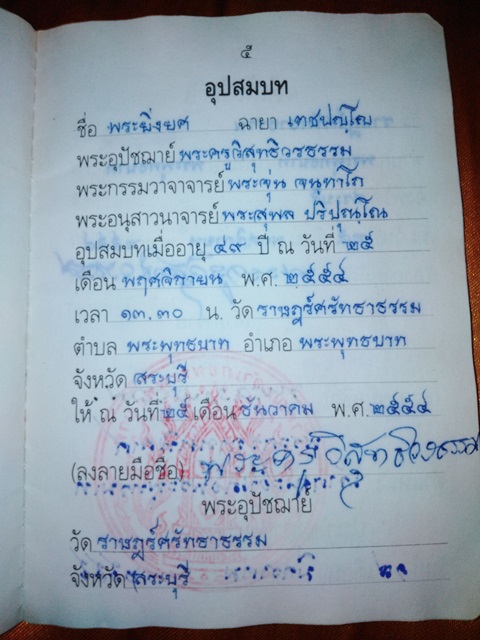 ๕
อุปสมบท
ชื่อ พระยิ่งยศ ฉายา เตชปญฺโญ
พระอุปัชฌาย์ พระครูวิสุทธิวรธรรม
พระกรรมวาจาจารย์ พระจุ่น จนฺทาโภ
พระอนุสาวนาจารย์ พระสุพล ปริปุณฺโณ
อุปสมบทเมื่ออายุ ๔๙ ปี ณ วันที่ ๒๕
เดือน พฤศจิกายน พ.ศ. ๒๕๕๔
เวลา ๑๓.๓๐ น. วัด ราษฎร์ศรัทธาธรรม
ตำบล พระพุทธบาท อำเภอ พระพุทธบาท
จังหวัด สระบุรี
ให้ ณ วันที่ ๒๕ เดือน ธันวาคม พ.ศ. ๒๕๕๔
(ลงลายมือชื่อ) พระครูวิสุทธิวรธรรม
พระอุปัชฌาย์
วัด ราษฎร์ศรัทธาธรรม
จังหวัด สระบุรี